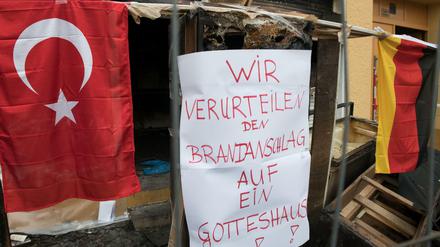 WIR
VERURTEILEN
DEN
BRANDANSCHLAG
AUF
EIN
GOTTESHAUS
! !